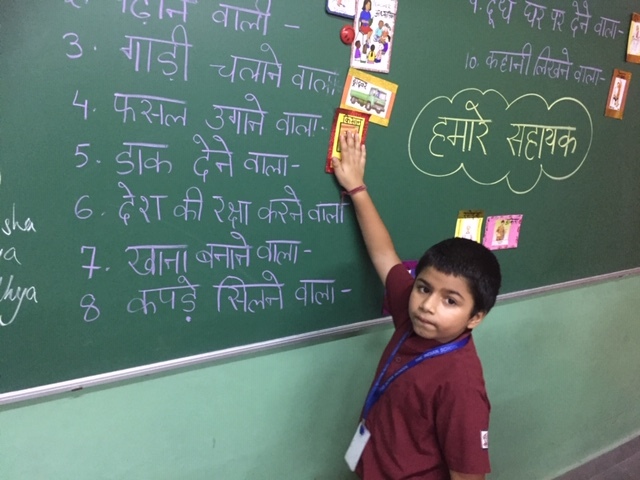 2. पढ़ाने वाली -
3. गाड़ी चलाने वाला
4. फसल उगाने वाला-
5. डाक देने वाला-
6. देश की रक्षा करने वाला
7. खाना बनाने वाला-
8 कपड़े सिलने वाला-
९. दूध घर पर देने वाला-
10. कहानी लिखने वाला-
हमारे सहायक
किसान
sha
ya
dhya